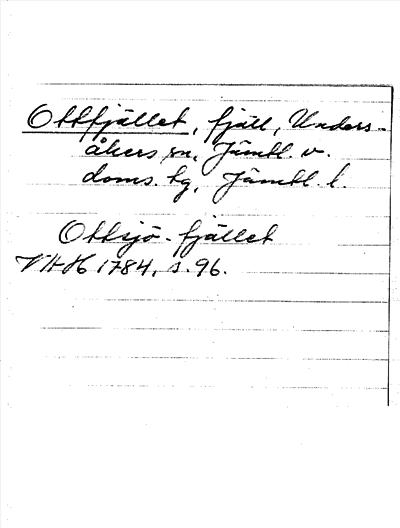 Ottfjället, fjäll, Unders-
åkers sn, Jämtl. v.
doms. tg, Jämtl. l.
Ottsjö-fjället
VAH 1784, s. 96.